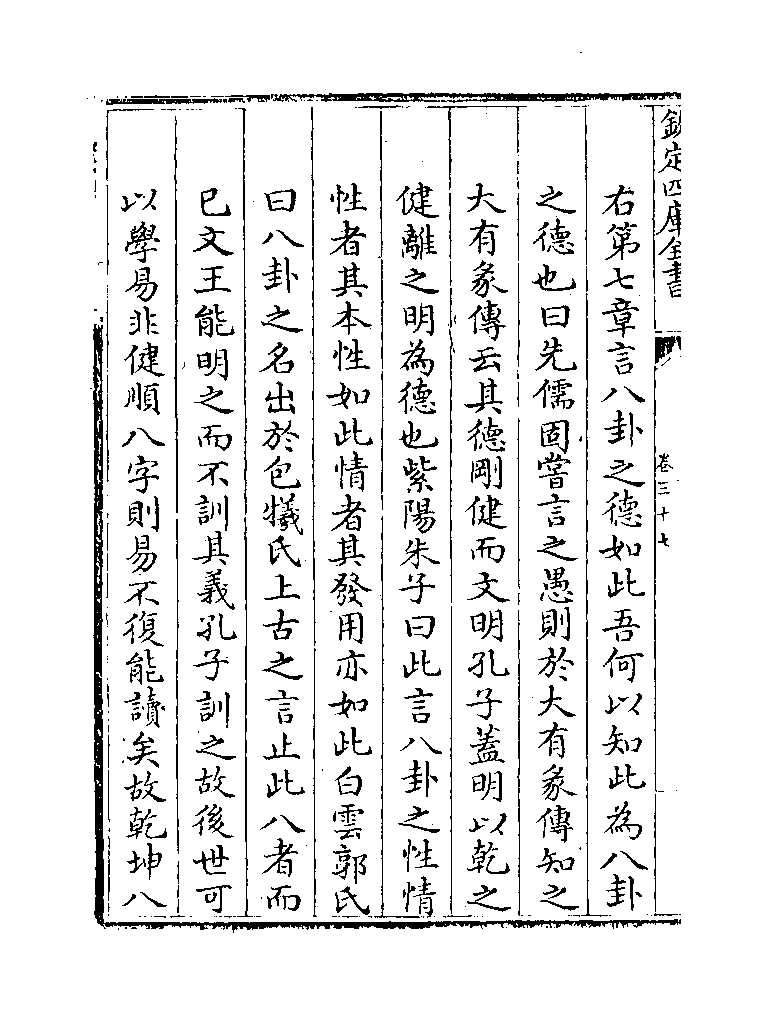 欽定四庫全書
卷三十七
右第七章言八卦之德如此吾何以知此為八卦
之德也曰先儒固嘗言之愚則於大有彖傳知之
大有彖傳云其德剛健而文明孔子蓋明以乾之
健離之明為德也紫陽朱子曰此言八卦之性情
性者其本性如此情者其發用亦如此白雲郭氏
曰八卦之名出於包犧氏上古之言止此八者而
已文王能明之而不訓其義孔子訓之故後世可
以學易非健順八字則易不復能讀矣故乾坤八